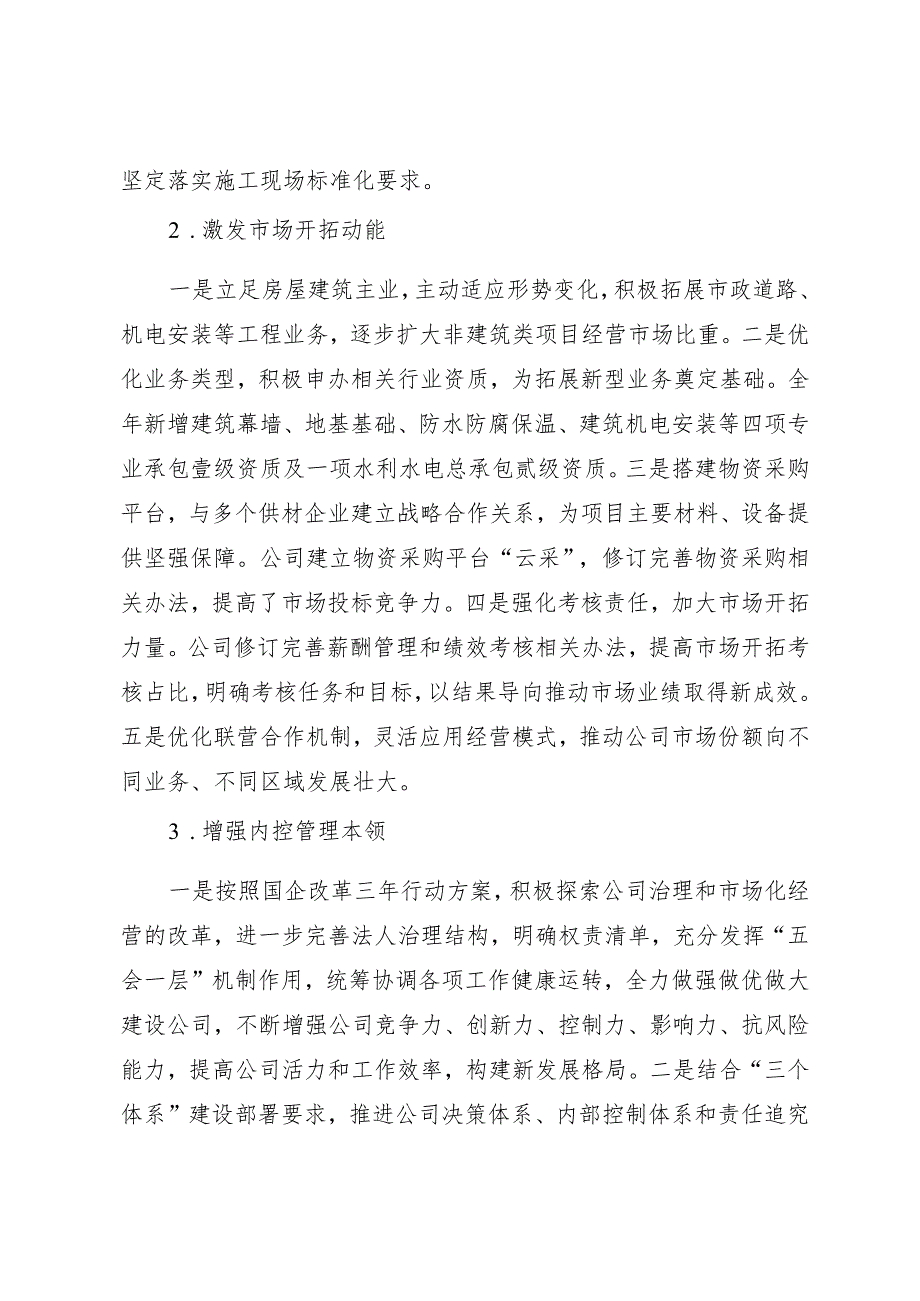 坚定落实施工现场标准化要求。
2 . 激发市场开拓动能
一是立足房屋建筑主业，主动适应形势变化，积极拓展市政道路、
机电安装等工程业务，逐步扩大非建筑类项目经营市场比重。二是优
化业务类型，积极申办相关行业资质，为拓展新型业务奠定基础。全
年新增建筑幕墙、地基基础、防水防腐保温、建筑机电安装等四项专
业承包壹级资质及一项水利水电总承包贰级资质。三是搭建物资采购
平台，与多个供材企业建立战略合作关系，为项目主要材料、设备提
供坚强保障。公司建立物资采购平台“云采”，修订完善物资采购相
关办法，提高了市场投标竞争力。四是强化考核责任，加大市场开拓
力量。公司修订完善薪酬管理和绩效考核相关办法，提高市场开拓考
核占比，明确考核任务和目标，以结果导向推动市场业绩取得新成效。
五是优化联营合作机制，灵活应用经营模式，推动公司市场份额向不
同业务、不同区域发展壮大。
3 . 增强内控管理本领
一是按照国企改革三年行动方案，积极探索公司治理和市场化经
营的改革，进一步完善法人治理结构，明确权责清单，充分发挥“五
会一层”机制作用，统筹协调各项工作健康运转，全力做强做优做大
建设公司，不断增强公司竞争力、创新力、控制力、影响力、抗风险
能力，提高公司活力和工作效率，构建新发展格局。二是结合“三个
体系”建设部署要求，推进公司决策体系、内部控制体系和责任追究